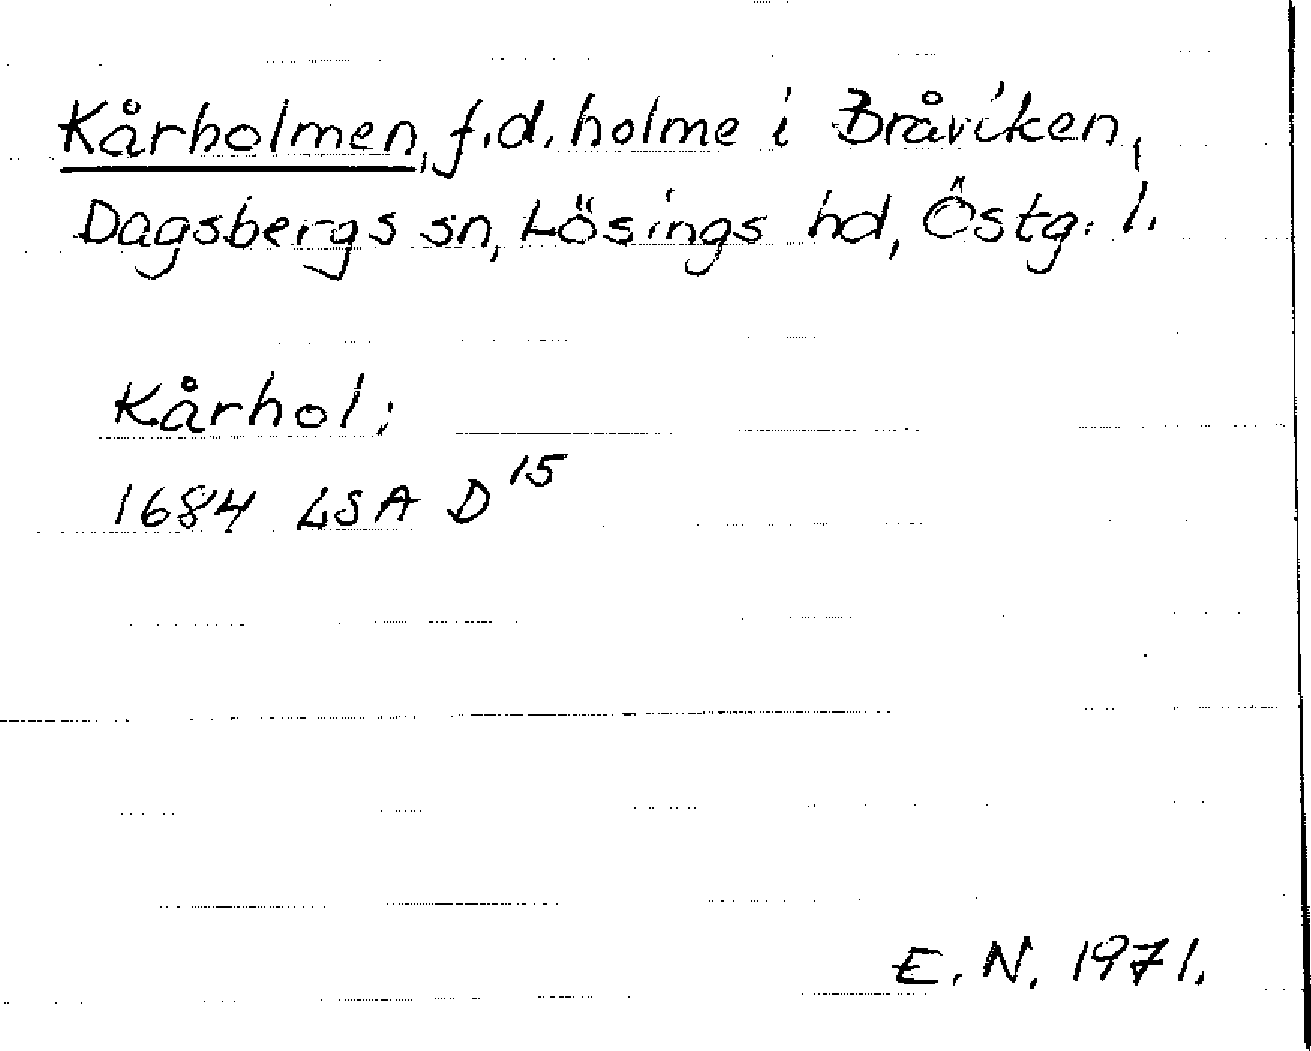 Kårholmen, f.d. holme i Bråviken,
Dagsbergs sn, Lösings hd, Östg. l.
Kårhol;
1684 LSA D 15
E. N. 1971.